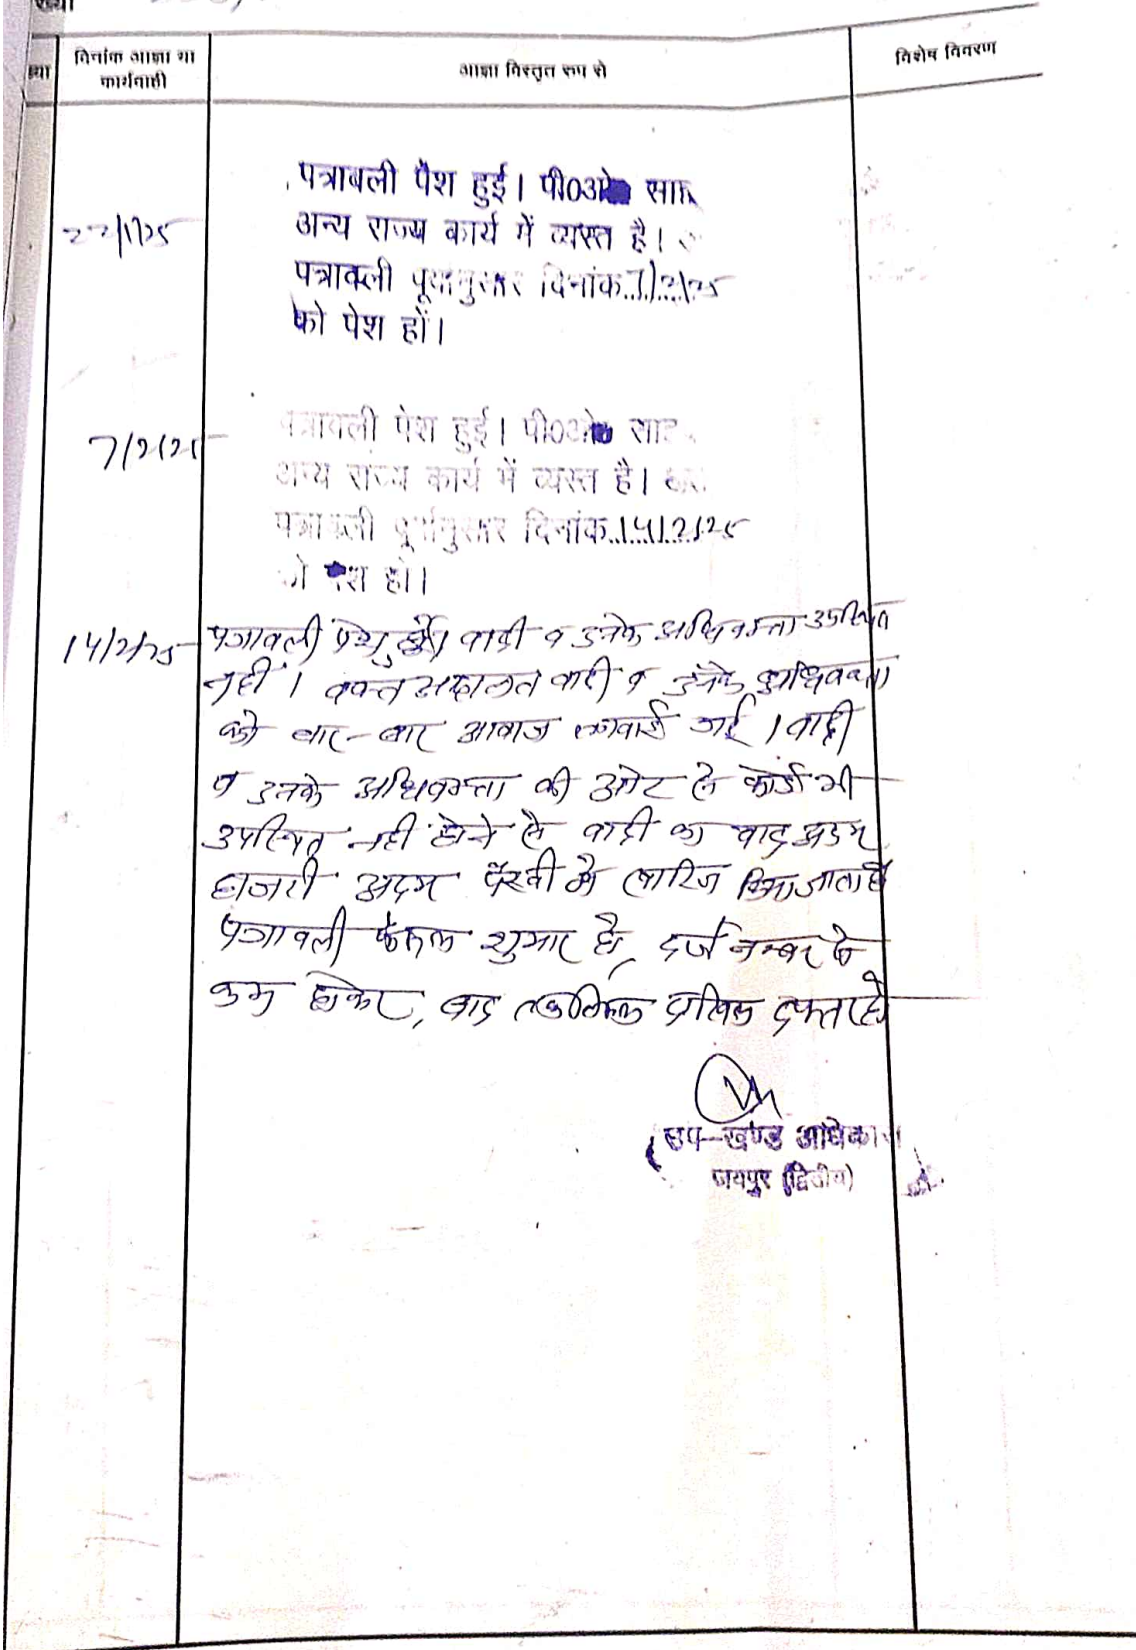 ख्या
दिनांक आज्ञा या
कार्यवाही
आज्ञा विस्तृत रुप से
विशेष विवरण
22/1/25
पत्रावली पेश हुई। पी0ओ0
अन्य राज्य कार्य में व्यस्त है।
पत्रावली पूर्वानुसार दिनांक 7/2/25
को पेश हों।
7/2/25
पत्रावली पेश हुई। पी0ओ0
अन्य राज्य कार्य में व्यस्त है।
पत्रावली पूर्वानुसार दिनांक 14/2/25
को पेश हो।
14/2/25 पत्रावली पेश हुई। वादी व उनके अधिवक्ता उपस्थित
नहीं। वक्त अदालत वादी व उनके अधिवक्ता
को बार-बार आवाज लगवाई गई। वादी
व उनके अधिवक्ता की ओर से कोई भी
उपस्थित नही होने से वादी का वाद अदम
हाजरी अदम पैरवी मे खारिज किया जाता है
पत्रावली फैसल शुमार हो, दर्ज नम्बर से
कम होकर, बाद तकमिल दाखिल दफ्तर हो
उप-खण्ड अधिकारी
जयपुर (द्वितीय)